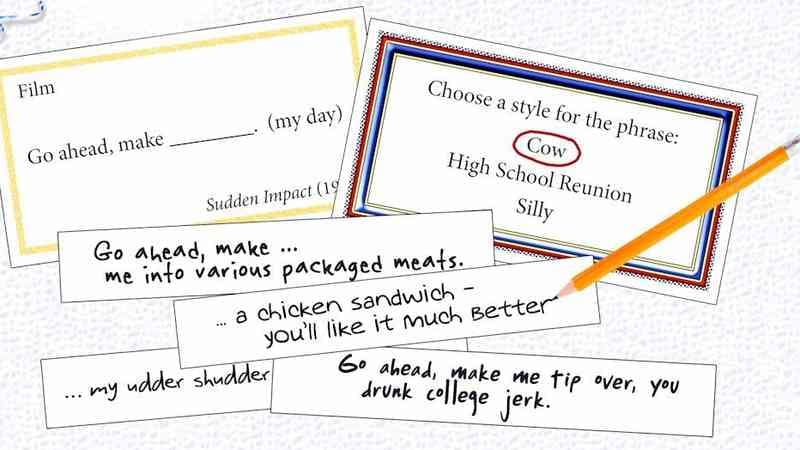 Film
Go ahead, make ________. (my day)
Sudden Impact (19
Choose a style for the phrase:
Cow
High School Reunion
Silly
Go ahead, make ...
me into various packaged meats.
... a chicken sandwich –
you'll like it much Better
... my udder shudder
Go ahead, make me tip over, you
drunk college jerk.